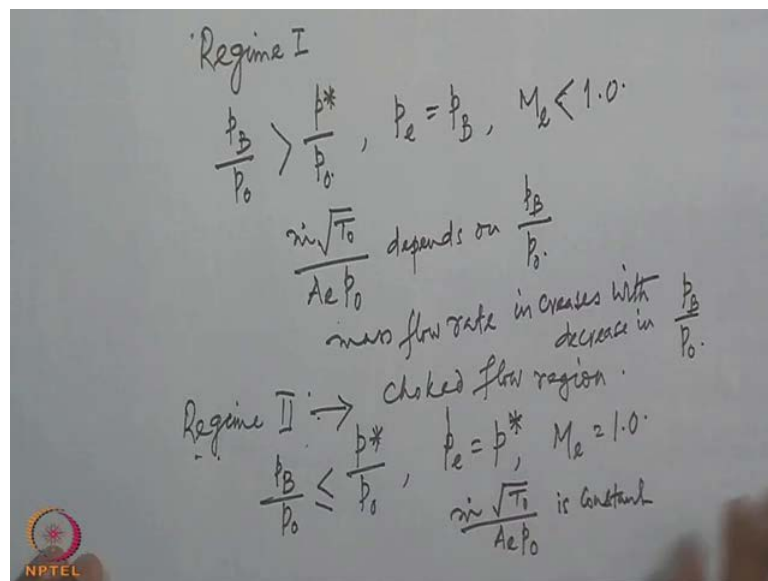 Regime I
p_B/p_0 > p*/p_0, p_e = p_B, M_e < 1.0.
ṁ√T_0/A_e p_0 depends on p_B/p_0.
mass flow rate increases with decrease in p_B/p_0.
Regime II → choked flow region.
p_B/p_0 ≤ p*/p_0, p_e = p*, M_e = 1.0.
ṁ√T_0/A_e p_0 is constant
NPTEL